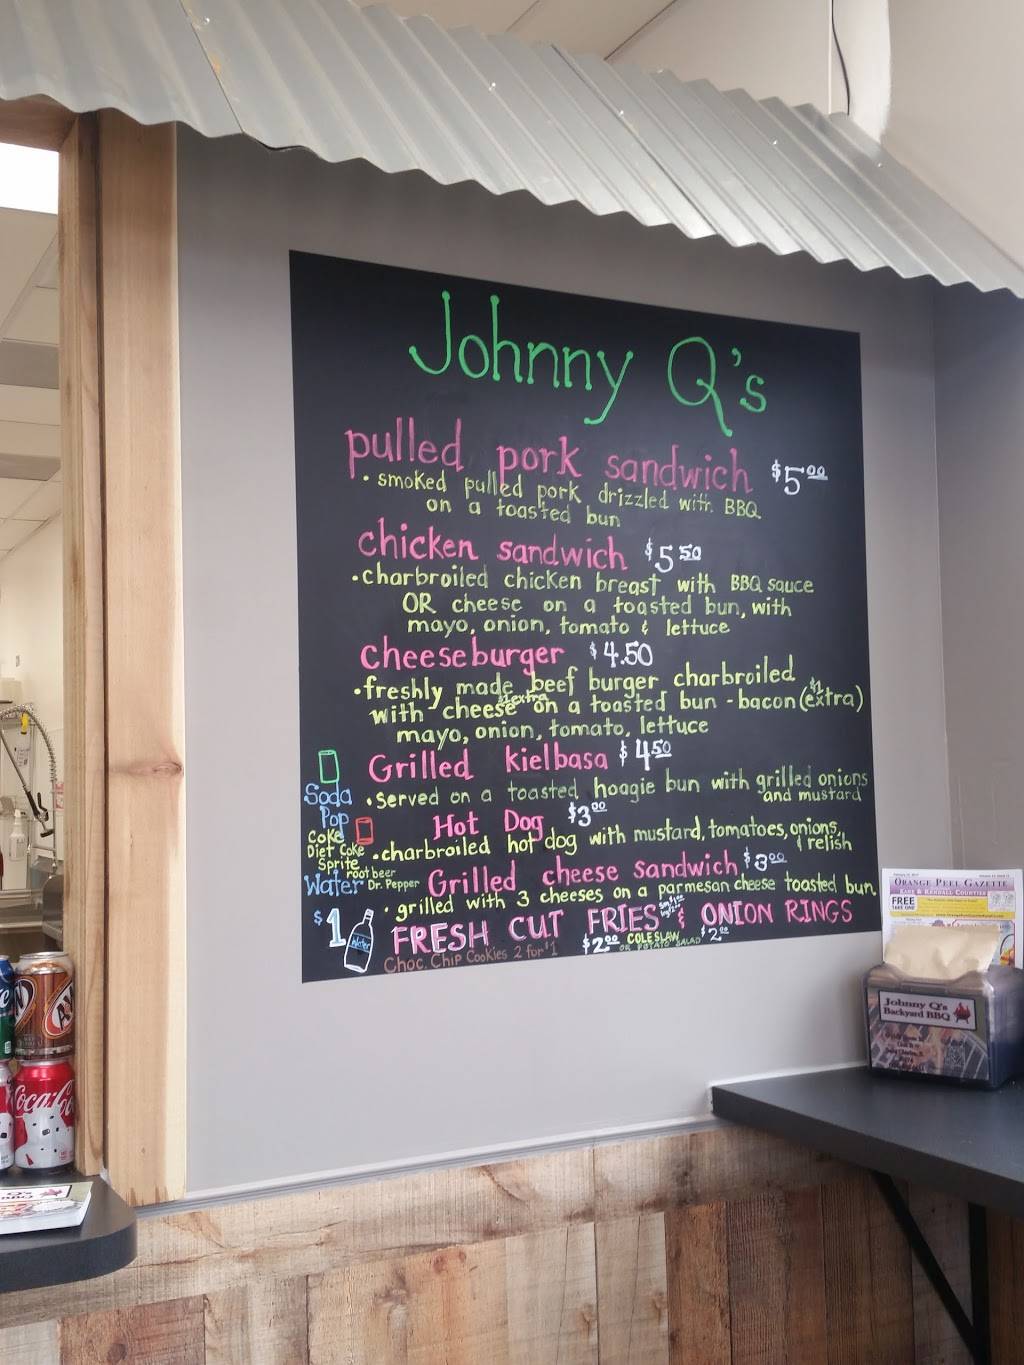 Johnny Q's
pulled pork sandwich $5.00
• smoked pulled pork drizzled with BBQ
on a toasted bun
chicken sandwich $5.50
• charbroiled chicken breast with BBQ sauce
OR cheese on a toasted bun, with
mayo, onion, tomato & lettuce
cheeseburger $4.50
• freshly made beef burger charbroiled
with cheese on a toasted bun - bacon ($1 extra)
$1 extra
mayo, onion, tomato, lettuce
Grilled kielbasa $4.50
• Served on a toasted hoagie bun with grilled onions
and mustard
Hot Dog $3.00
• charbroiled hot dog with mustard, tomatoes, onions,
& relish
Grilled cheese sandwich $3.00
• grilled with 3 cheeses on a parmesan cheese toasted bun.
FRESH CUT FRIES & ONION RINGS
$2.00 COLESLAW $2.00
OR POTATO SALAD
Choc. Chip Cookies 2 for $1
Soda
Pop
Coke
Diet Coke
Sprite
root beer
Water Dr. Pepper
$1
Water
ORANGE PEEL GAZETTE
KANE & KENDALL COUNTIES
FREE
TAKE ONE
Johnny Q's
Backyard BBQ
A&W
Coca-Co
Q's
BBQ